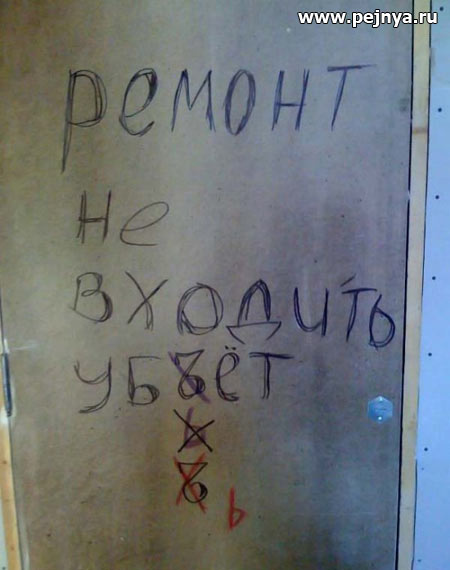 www.pejnya.ru
ремонт
не
входить
убъёт
ъ
ь